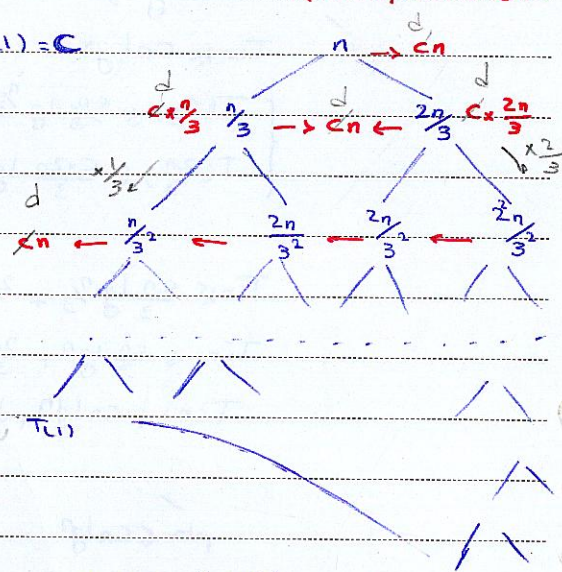 1) = C
n → d c n
d c × n/3 n/3 → d c n ← 2n/3 d c × 2n/3
× 1/3 × 2/3
d c n ← n/3² ← 2n/3² ← 2n/3² ← 2²n/3²
T(1)